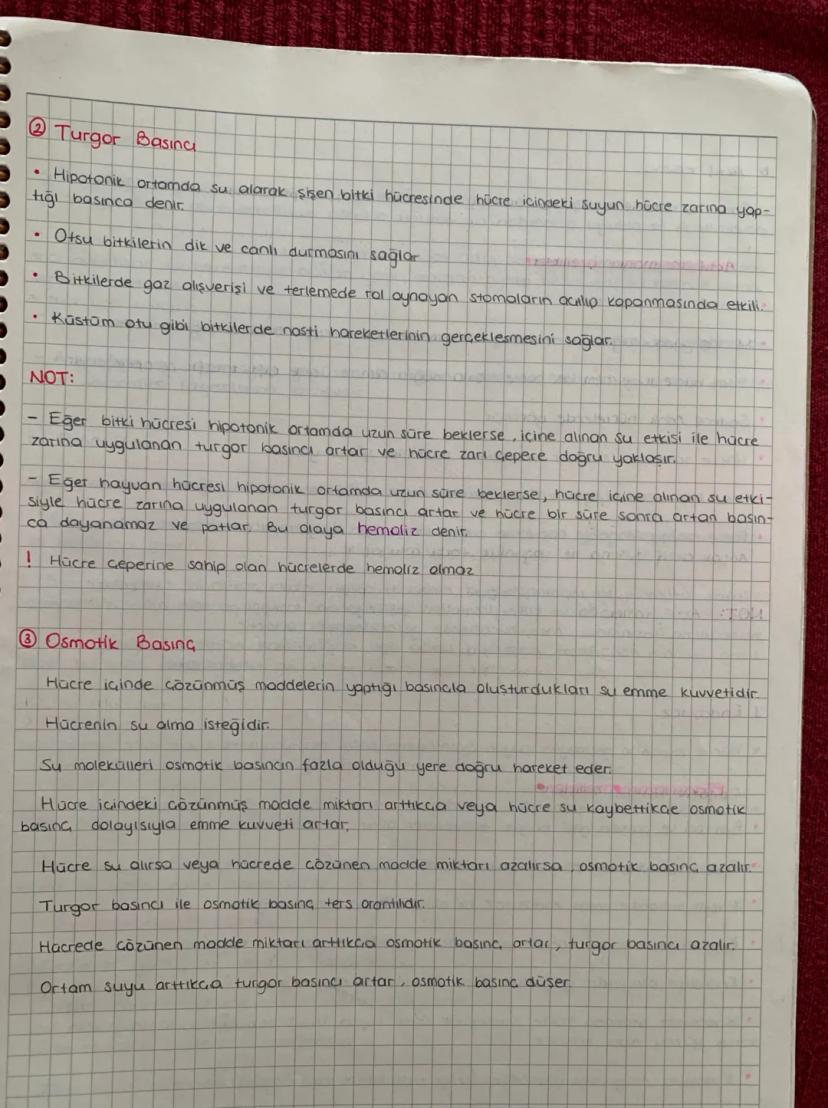 ② Turgor Basıncı
• Hipotonik ortamda su alarak şişen bitki hücresinde hücre içindeki suyun hücre zarına yap-
tığı basınca denir.
• Otsu bitkilerin dik ve canlı durmasını sağlar
• Bitkilerde gaz alışverişi ve terlemede rol oynayan stomaların açılıp kapanmasında etkili.
• Küstüm otu gibi bitkilerde nasti hareketlerinin gerçekleşmesini sağlar.
NOT:
- Eğer bitki hücresi hipotonik ortamda uzun süre beklerse, içine alınan su etkisi ile hücre
zarına uygulanan turgor basıncı artar ve hücre zarı çepere doğru yaklaşır.
- Eğer hayvan hücresi hipotonik ortamda uzun süre beklerse, hücre içine alınan su etki-
siyle hücre zarına uygulanan turgor basıncı artar ve hücre bir süre sonra artan basın-
ca dayanamaz ve patlar. Bu olaya hemoliz denir.
! Hücre çeperine sahip olan hücrelerde hemoliz olmaz
③ Osmotik Basınç
Hücre içinde çözünmüş maddelerin yaptığı basınçla oluşturdukları su emme kuvvetidir.
Hücrenin su alma isteğidir.
Su molekülleri osmotik basıncın fazla olduğu yere doğru hareket eder.
Hücre içindeki çözünmüş madde miktarı arttıkça veya hücre su kaybettikçe osmotik
basınç dolayısıyla emme kuvveti artar.
Hücre su alırsa veya hücrede çözünen madde miktarı azalırsa, osmotik basınç azalır.
Turgor basıncı ile osmotik basınç ters orantılıdır.
Hücrede çözünen madde miktarı arttıkça osmotik basınç artar, turgor basıncı azalır.
Ortam suyu arttıkça turgor basıncı artar, osmotik basınç düşer.